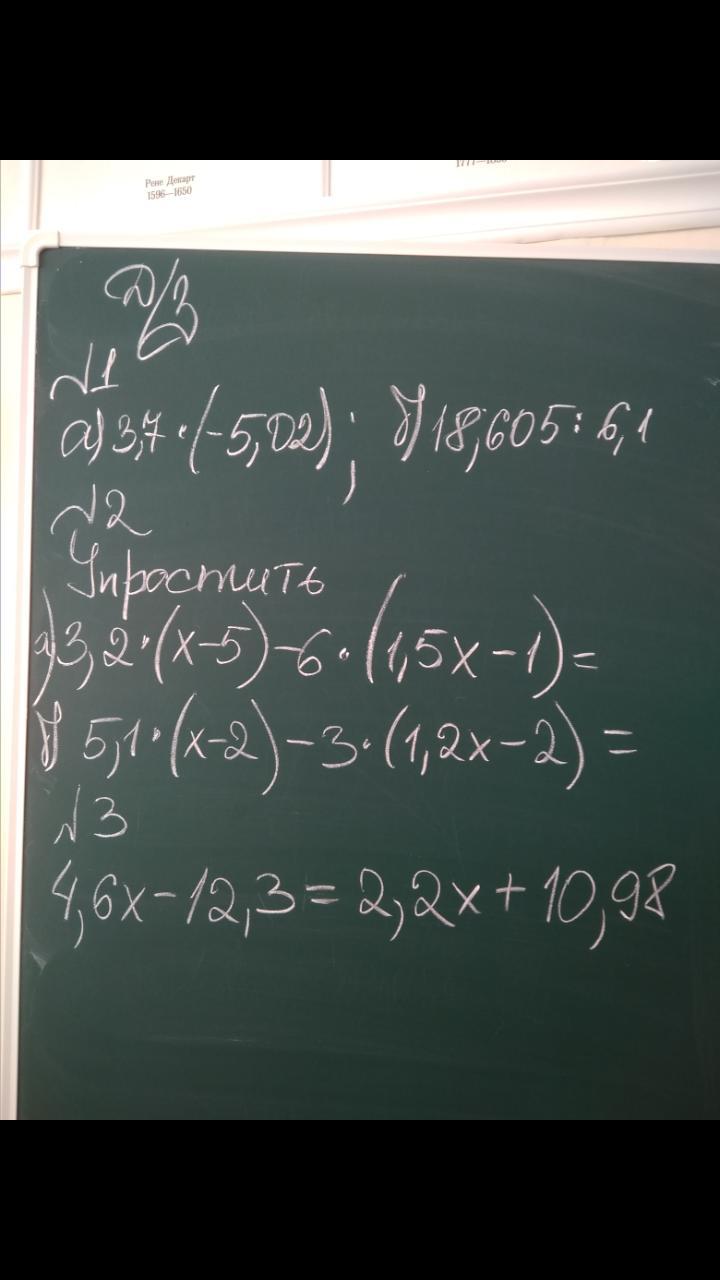 Рене Декарт
1596—1650
Д/З
№1
а) 3,7·(-5,02); б) 18,605:6,1
№2
Упростить
а) 3,2·(x-5)-6·(1,5x-1)=
б) 5,1·(x-2)-3·(1,2x-2)=
№3
4,6x-12,3=2,2x+10,98